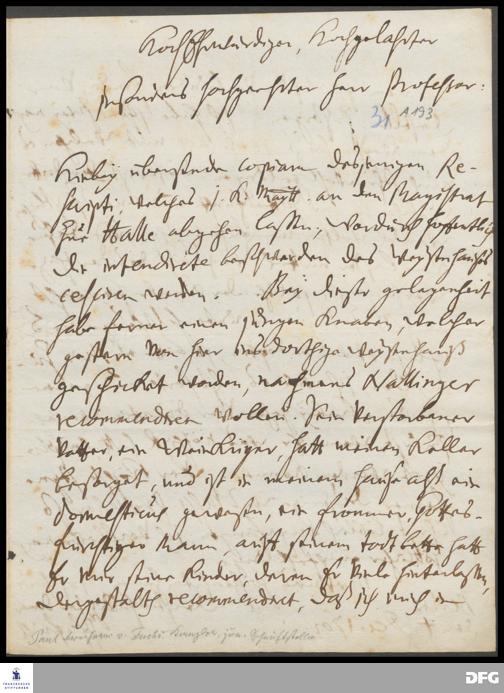 HochEhrwürdiger, Hochgelahrter
insonders hochgeehrter Herr Professor:
31 A 193
Hiebey übersende copiam desjenigen Re-
scripti, welches S. K. Maytt. an den Magistrat
zue Halle abgehen lassen, wordurch hoffentlich
die intendirete beschwerden des Weysenhauses
cessiren werden. Bey dieser gelegenheit
habe ferner einen jungen Knaben, welcher
gestern von hier ins dorthige Weysenhauß
geschicket worden, nahmens Nallinger
recommendiren wollen. Sein verstorbener
Vatter, ein Weinküper, hatt meinen Keller
besorget, und ist in meinem Hause alß ein
domesticus gewesen, ein frommer Gottes-
fürchtiger Mann, auff seinem todtbette hatt
Er mir seine Kinder, deren Er viele hinterlassen,
dergestallt recommendirt, daß ich mich in
Paul v. Fuchs Kanzler,
FRANCKESCHE STIFTUNGEN
DFG